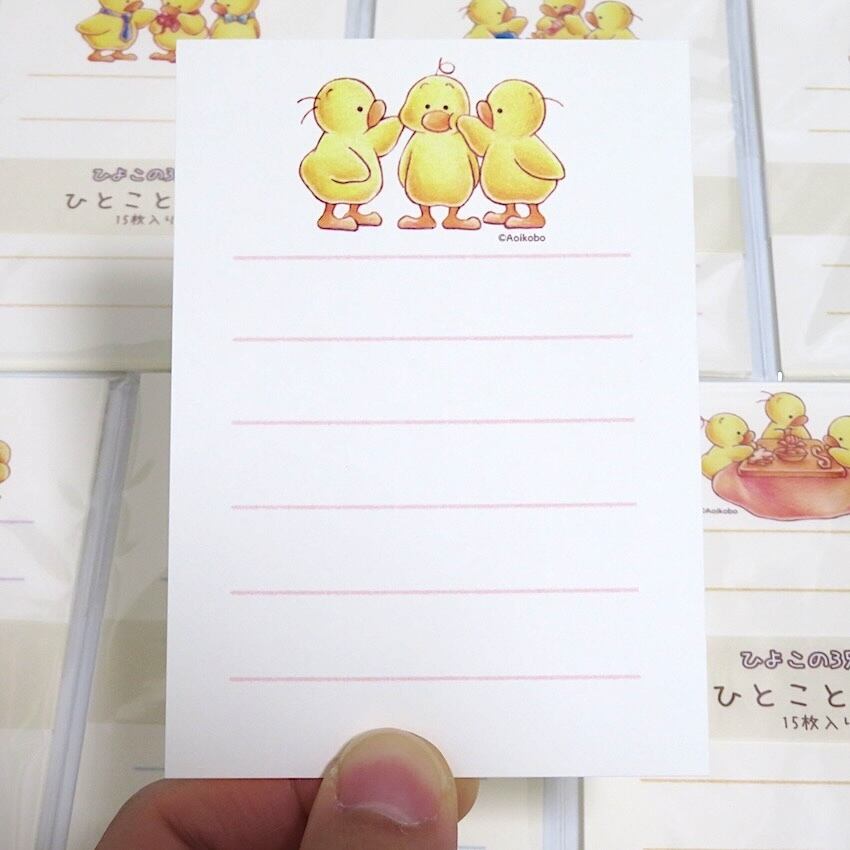 ©Aoikobo
ひよこの3
ひとこと
15枚入り
©Aoikobo
ひよこの3
ひとこと
15枚入り